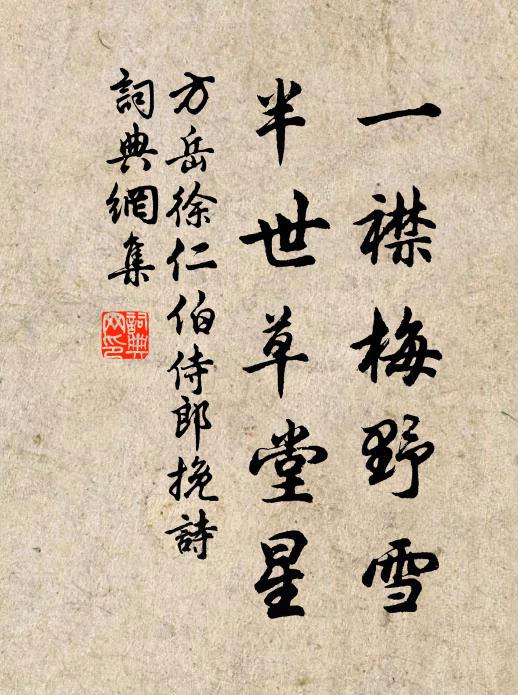 一襟梅野雪
半世草堂星
方岳徐仁伯侍郎挽詩
詞典網集
詞典
网印